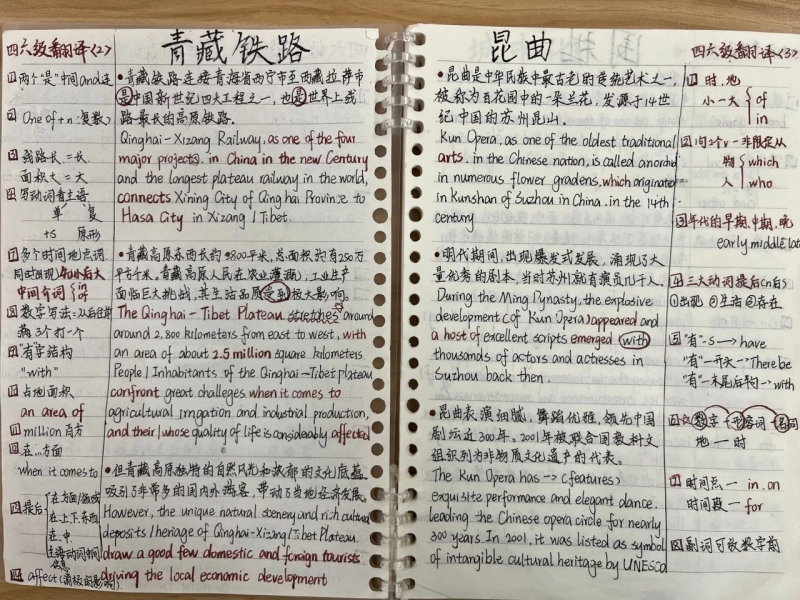 四六级翻译(2)
青藏铁路
四两个"是"中间and连
四 One of + n(复数)
四线路长 = 长
面积大 = 大
四写动词看主语
单 复
+s 原形
四多个时间地点词
同时出现先小后大
中间介词 in of
四数字写法:从后往前
满3个打一个
四"有"字结构
"with"
四占地面积
an area of
四million 百万
四在...方面
when it comes to
四最后
在方面/领域
在上下东西
在中
affect(消极的影响)
•青藏铁路连接青海省西宁市至西藏拉萨市
是中国新世纪四大工程之一,也是世界上线
路最长的高原铁路.
Qinghai-Xizang Railway, as one of the four
major projects in China in the new Century
and the longest plateau railway in the world,
connects Xining City of Qinghai Province to
Hasa City in Xizang / Tibet.
•青藏高原东西长约2800千米,总面积约有250万
平方千米。青藏高原人民在农业灌溉,工业生产
面临巨大挑战,其生活品质受到极大影响.
The Qinghai-Tibet Plateau stretches around
around 2,800 kilometers from east to west, with
an area of about 2.5 million square kilometers
People / Inhabitants of the Qinghai-Tibet plateau
confront great challeges when it comes to
agricultural irrigation and industrial production,
and their / whose quality of life is considerably affected
•但青藏高原独特的自然风光和浓郁的文化底蕴
吸引了非常多的国内外游客,带动了当地经济发展.
However, the unique natural scenery and rich cultural
deposits / heriage of Qinghai-Xizang / Tibet Plateau
draw a good few domestic and foreign tourists
driving the local economic development
昆曲
四六级翻译(3)
•昆曲是中华民族中最古老的传统艺术之一,
被称为百花园中的一朵兰花,发源于14世
纪中国的苏州昆山.
Kun Opera, as one of the oldest traditional
arts. in the Chinese nation, is called an orchid
in numerous flower gradens, which originated
in Kunshan of Suzhou in China. in the 14th
century
•明代期间,出现爆发式发展,涌现了大
量优秀的剧本,当时苏州就有演员几千人.
During the Ming Dynasty, the explosive
development (of Kun Opera) appeared and
a host of excellent scripts emerged with
thousands of actors and actresses in
Suzhou back then.
•昆曲表演细腻,舞蹈优雅,领先中国
剧坛近300年。2001年被联合国教科文
组织列为非物质文化遗产的代表。
The Kun Opera has → (features)
exquisite performance and elegant dance.
leading the Chinese opera circle for nearly
300 years In 2001, it was listed as symbol
of intangible cultural heritage by UNESCO
四 时、地
小一大 of
in
四1句2个v-非限定从
物 which
人 who
四年代的早期、中期、晚
early middle late
四三大动词提后(n后)
①出现 ②生活 ③存在
四"有"-s → have
"有"-开头 → There be
"有"-末尾后钩 → with
四☆数字-形容词-名词
地一时
四时间点一 in, on
时间段一 for
四副词可放数字前